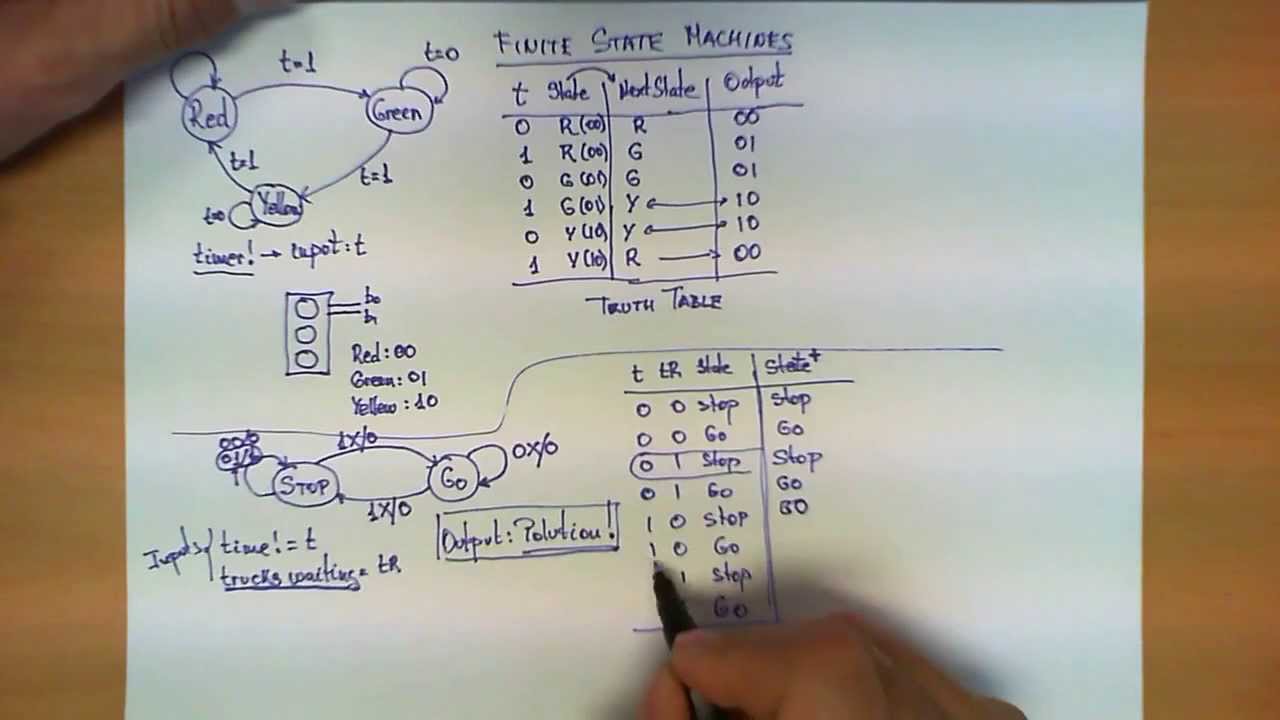 FINITE STATE MACHINES
t=1
t=0
Red
Green
t=1
t=1
Yellow
t=0
timer! → input: t
b0
b1
Red: 00
Green: 01
Yellow: 10
t State Next State Output
0 R(00) R 00
1 R(00) G 01
0 G(01) G 01
1 G(01) Y 10
0 Y(10) Y 10
1 Y(10) R 00
TRUTH TABLE
00/0
01/1
1X/0
0X/0
STOP
Go
1X/0
Output: Polution!
Inputs
time! = t
trucks waiting = tR
t tR State State+
0 0 Stop Stop
0 0 Go Go
0 1 Stop Stop
0 1 Go Go
1 0 Stop GO
1 0 Go
1 Stop
Go